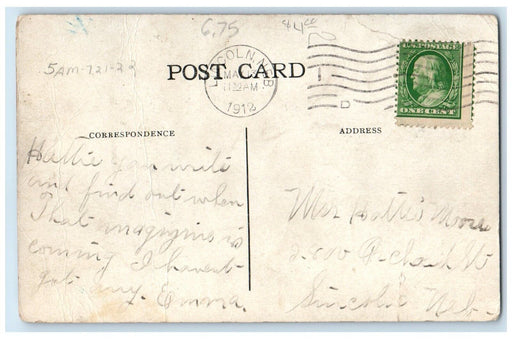 6.75
$4.00
5AM-721-22
POST CARD
LINCOLN, NEB.
MA
1122AM
1912
D
U.S. POSTAGE
ONE CENT
CORRESPONDENCE
ADDRESS
Hattie you write
and find out when
That magizine is
coming I havent
got any. Emma.
Miss Hattie Moore
Lincoln Neb.